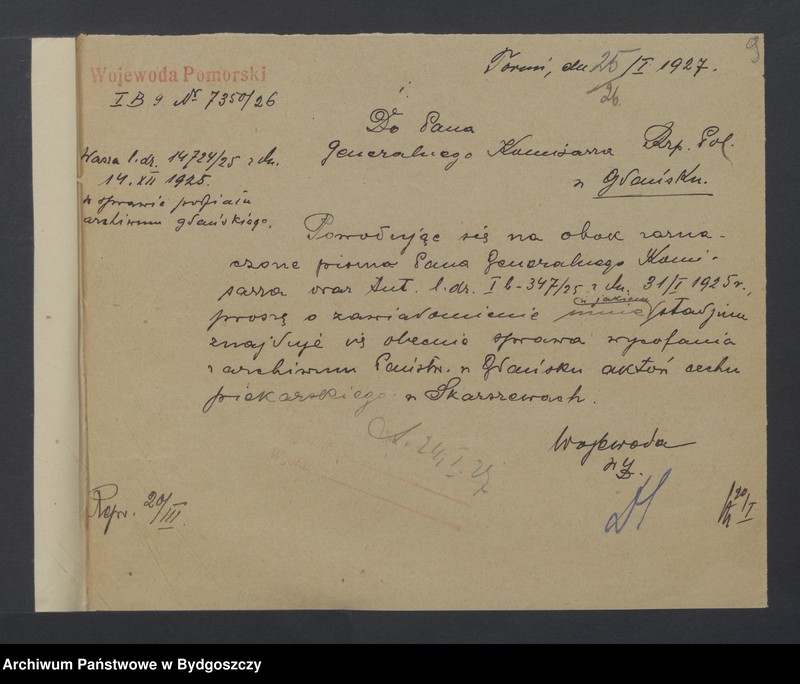 9
Wojewoda Pomorski
Toruń, dn. 25/I 1927.
26.
I B 9 Nr 7350/26
Do Pana
Generalnego Komisarza Rzp. Pol.
w Gdańsku.
Wasza l. dz. 14724/25 z dn.
14. XII 1925.
w sprawie podziału
archiwum gdańskiego.
Powołując się na obok zazna-
czone pismo Pana Generalnego Komi-
sarza oraz tut. l. dz. I b-347/25 z dn. 31/I 1925 r.,
proszę o zawiadomienie mnie, w jakiem stadjum
znajduje się obecnie sprawa wycofania
z archiwum Państw. w Gdańsku aktów cechu
piekarskiego w Skarszewach.
A. 24. I. 27
Wojewoda
wz.
Repr. 20/III
20/I
Archiwum Państwowe w Bydgoszczy